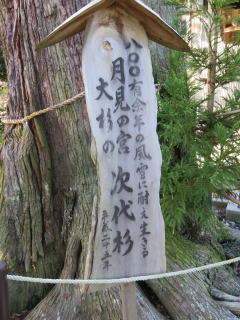 八〇〇有余年の風雪に耐え生きる
月見の宮 次代杉
大杉の
平成二十五年